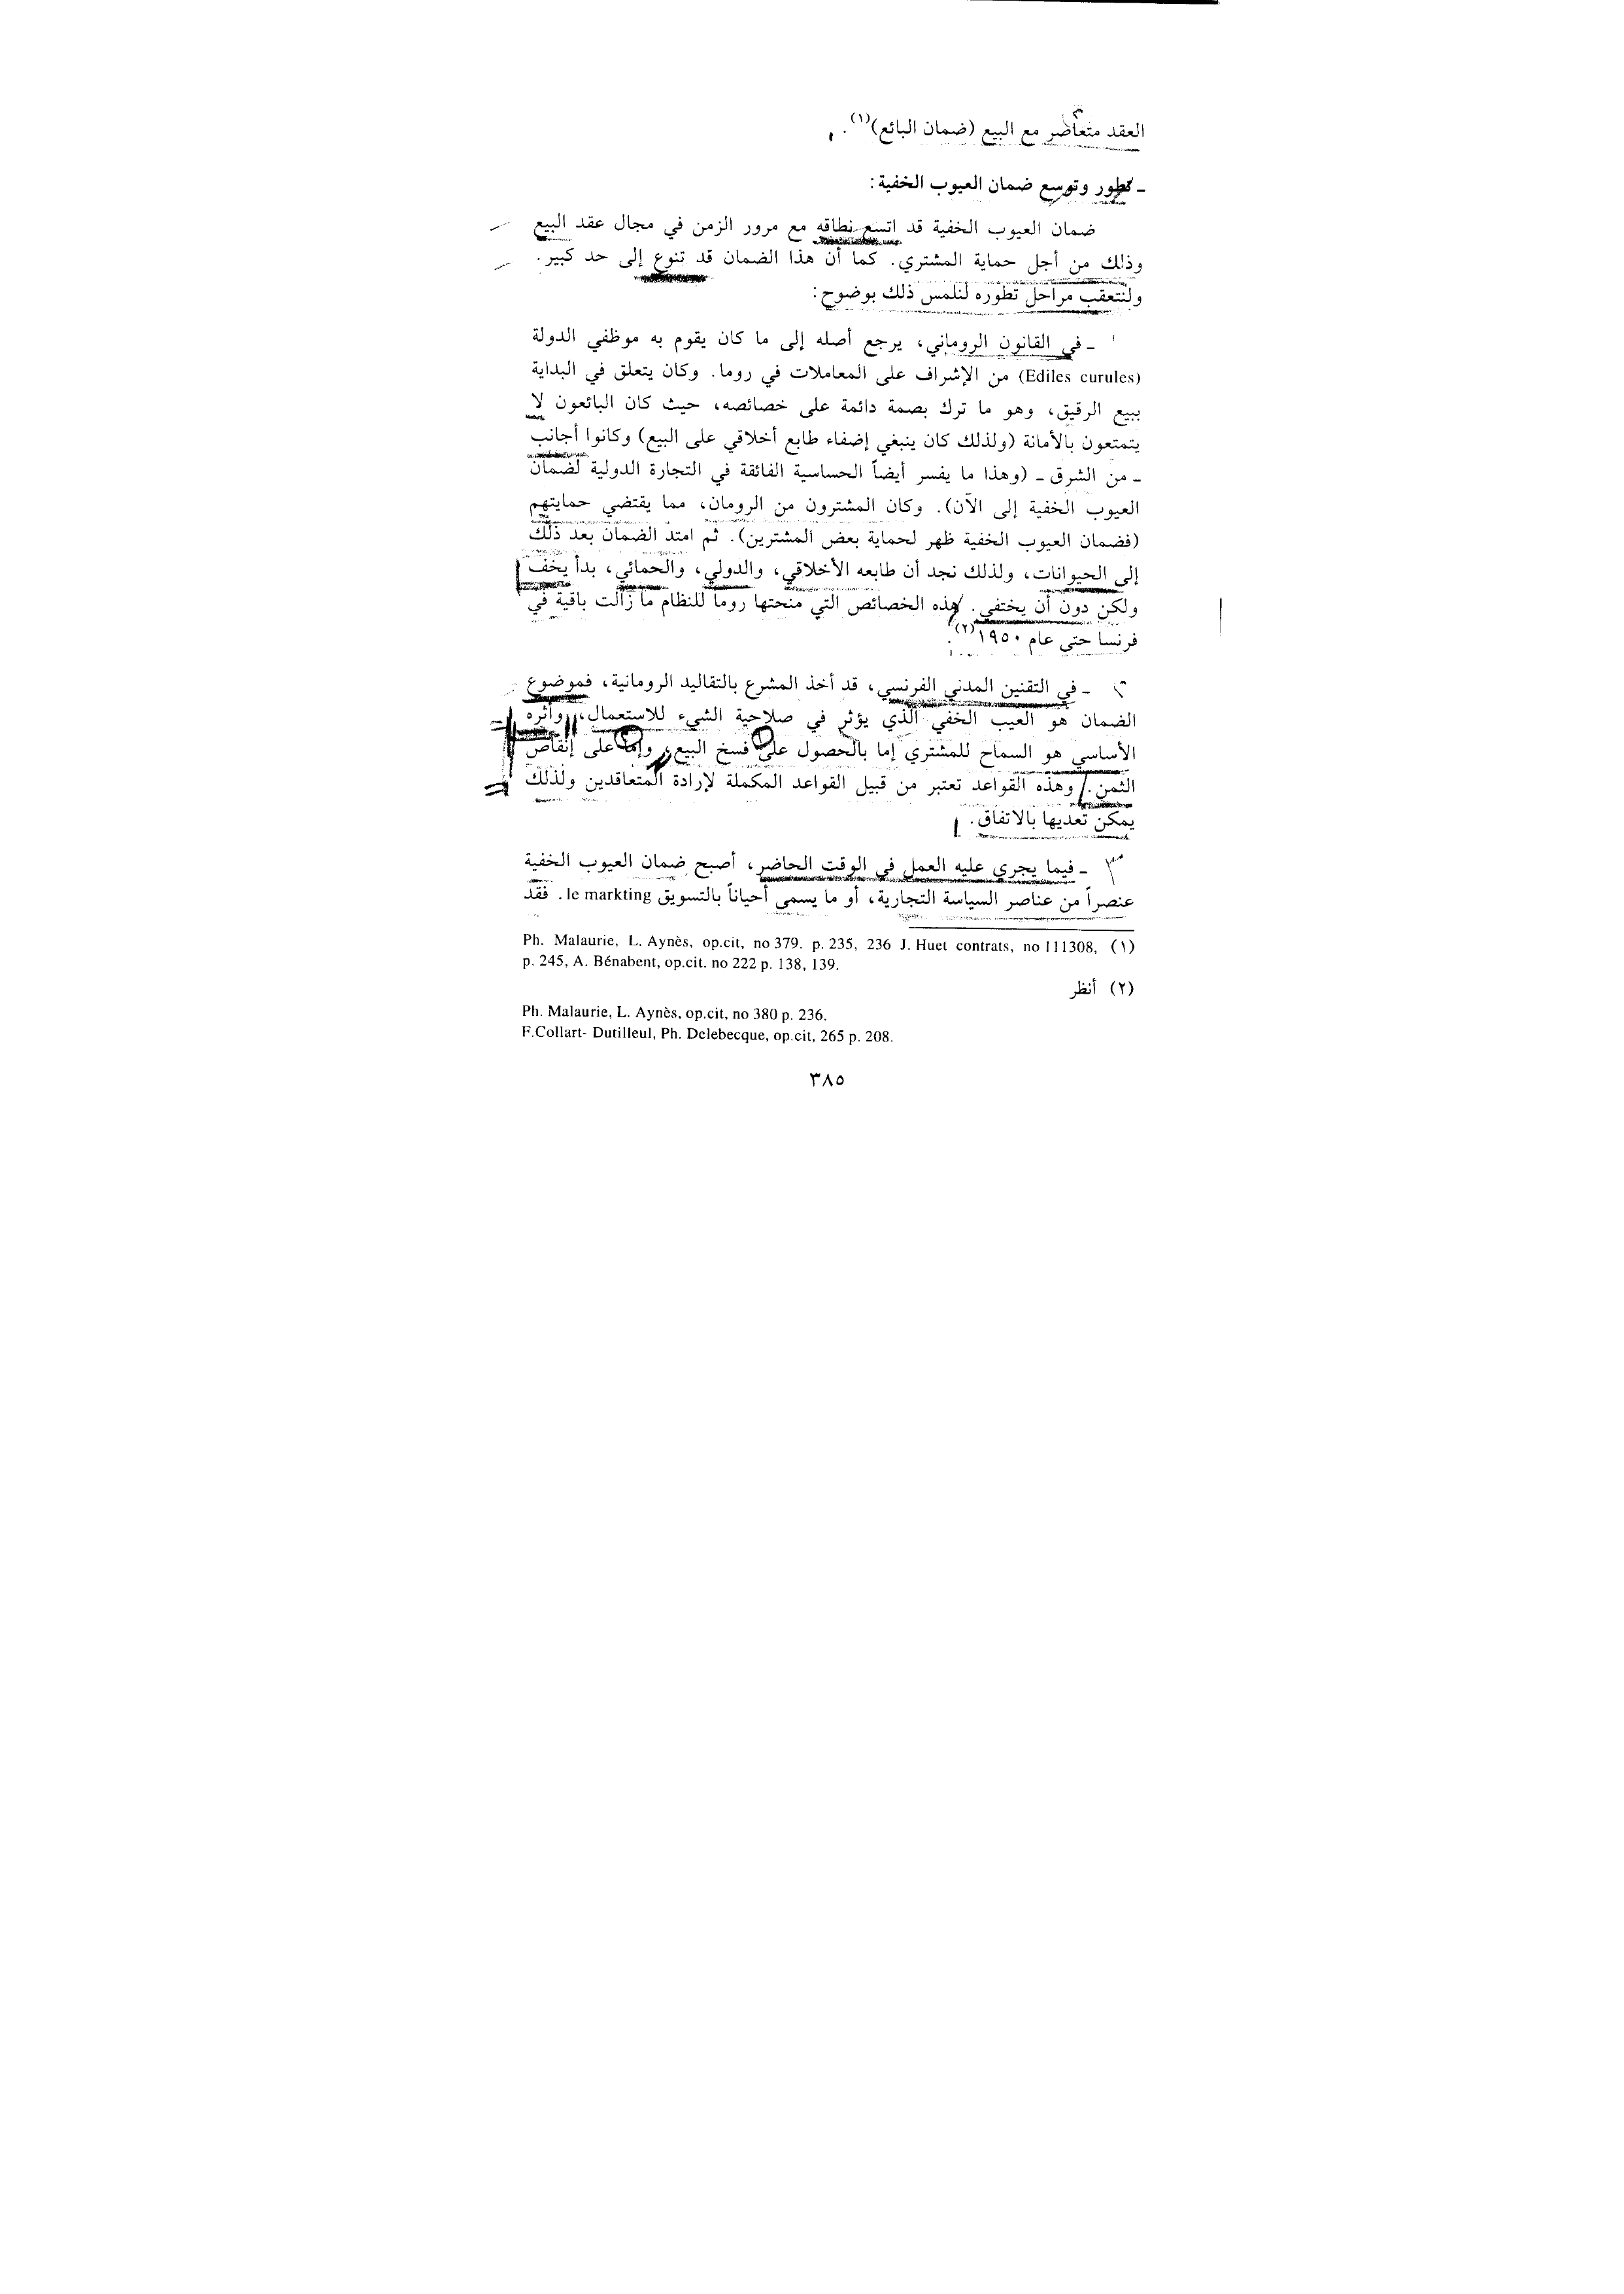 العقد متعاصر مع البيع (ضمان البائع)(١).
ـ تطور وتوسع ضمان العيوب الخفية:
ضمان العيوب الخفية قد اتسع نطاقه مع مرور الزمن في مجال عقد البيع
وذلك من أجل حماية المشتري. كما أن هذا الضمان قد تنوع إلى حد كبير.
ولنتعقب مراحل تطوره لنلمس ذلك بوضوح:
١ ـ في القانون الروماني، يرجع أصله إلى ما كان يقوم به موظفي الدولة
(Ediles curules) من الإشراف على المعاملات في روما. وكان يتعلق في البداية
ببيع الرقيق، وهو ما ترك بصمة دائمة على خصائصه، حيث كان البائعون لا
يتمتعون بالأمانة (ولذلك كان ينبغي إضفاء طابع أخلاقي على البيع) وكانوا أجانب
ـ من الشرق ـ (وهذا ما يفسر أيضاً الحساسية الفائقة في التجارة الدولية لضمان
العيوب الخفية إلى الآن). وكان المشترون من الرومان، مما يقتضي حمايتهم
(فضمان العيوب الخفية ظهر لحماية بعض المشترين). ثم امتد الضمان بعد ذلك
إلى الحيوانات، ولذلك نجد أن طابعه الأخلاقي، والدولي، والحمائي، بدأ يخف
ولكن دون أن يختفي. هذه الخصائص التي منحتها روما للنظام ما زالت باقية في
فرنسا حتى عام ١٩٥٠(٢).
٢ ـ في التقنين المدني الفرنسي، قد أخذ المشرع بالتقاليد الرومانية، فموضوع
الضمان هو العيب الخفي الذي يؤثر في صلاحية الشيء للاستعمال، وأثره
الأساسي هو السماح للمشتري إما بالحصول على فسخ البيع، وإما على إنقاص
الثمن. وهذه القواعد تعتبر من قبيل القواعد المكملة لإرادة المتعاقدين ولذلك
يمكن تعديها بالاتفاق.
٣ ـ فيما يجري عليه العمل في الوقت الحاضر، أصبح ضمان العيوب الخفية
عنصراً من عناصر السياسة التجارية، أو ما يسمى أحياناً بالتسويق le markting. فقد
(١) Ph. Malaurie, L. Aynès, op.cit, no 379. p. 235, 236 J. Huet contrats, no 111308,
p. 245, A. Bénabent, op.cit. no 222 p. 138, 139.
(٢) أنظر
Ph. Malaurie, L. Aynès, op.cit, no 380 p. 236.
F.Collart- Dutilleul, Ph. Delebecque, op.cit, 265 p. 208.
٣٨٥